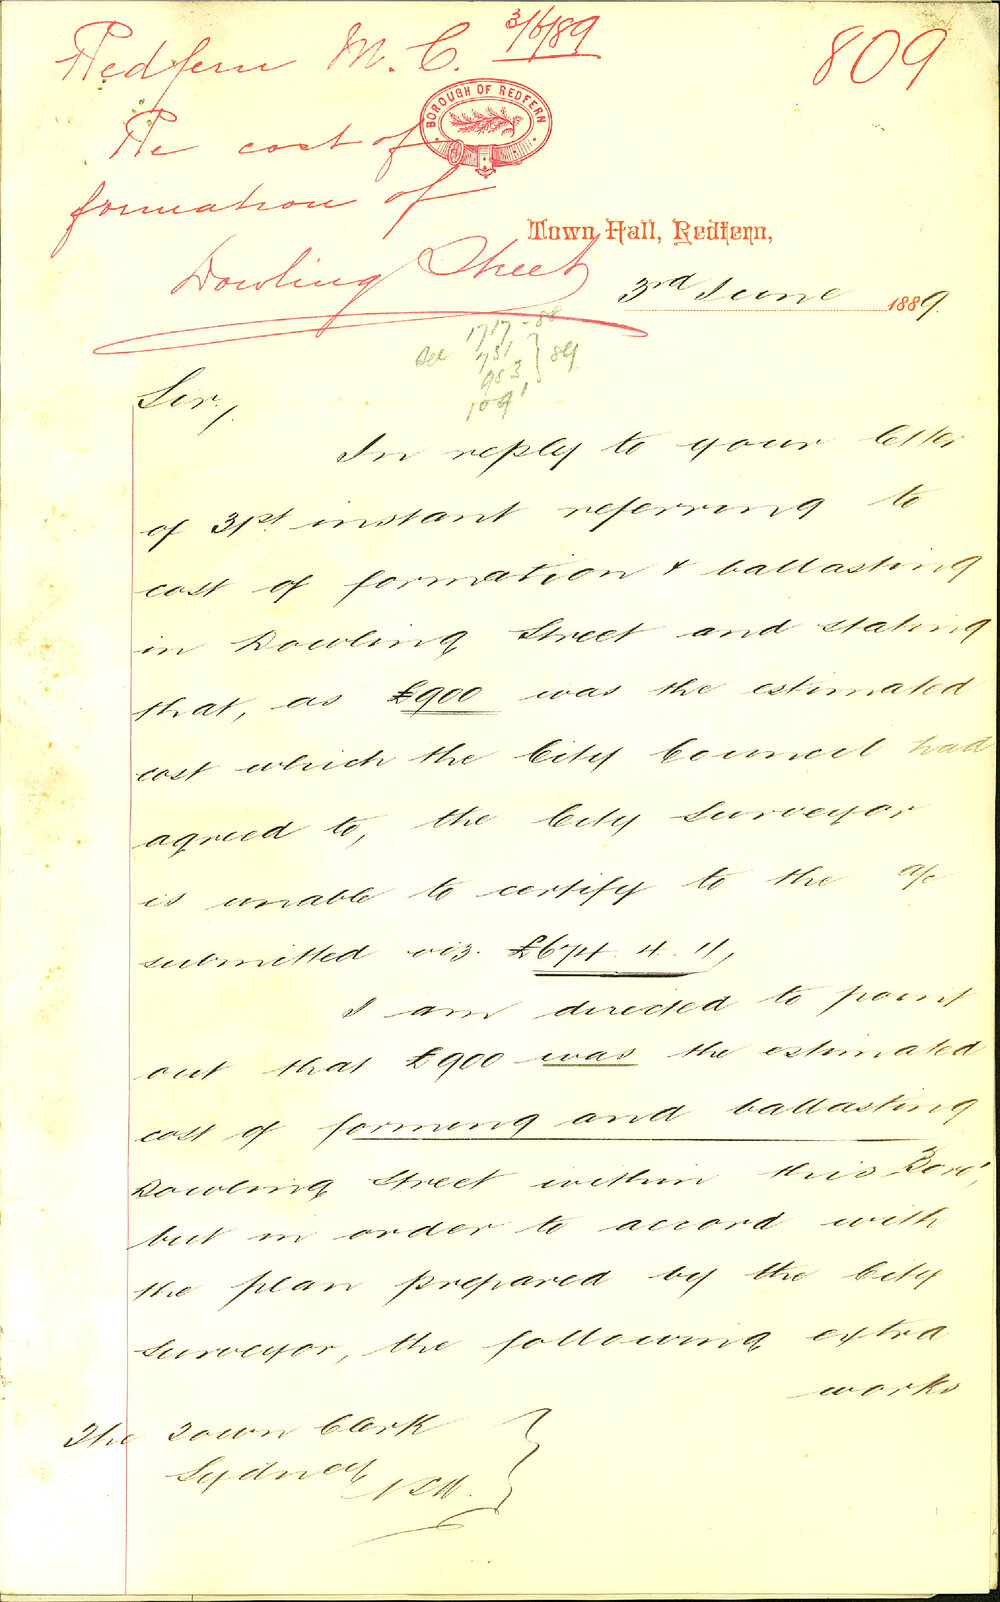 Redfern M. C. 3/6/89
809
BOROUGH OF REDFERN
Re cost of
formation of
Dowling Street
Town Hall, Redfern,
3rd June 1889.
1717-88
See 731 } 89
953
109'
Sir,
In reply to your letter
of 31st instant referring to
cost of formation & ballasting
in Dowling Street and stating
that, as £900 was the estimated
cost which the City Council had
agreed to, the City Surveyor
is unable to certify to the a/c
submitted viz. £674. 4. 11,
I am directed to point
out that £900 was the estimated
cost of forming and ballasting
Dowling Street within this Boro',
but in order to accord with
the plan prepared by the City
Surveyor, the following extra
works
The Town Clerk
Sydney